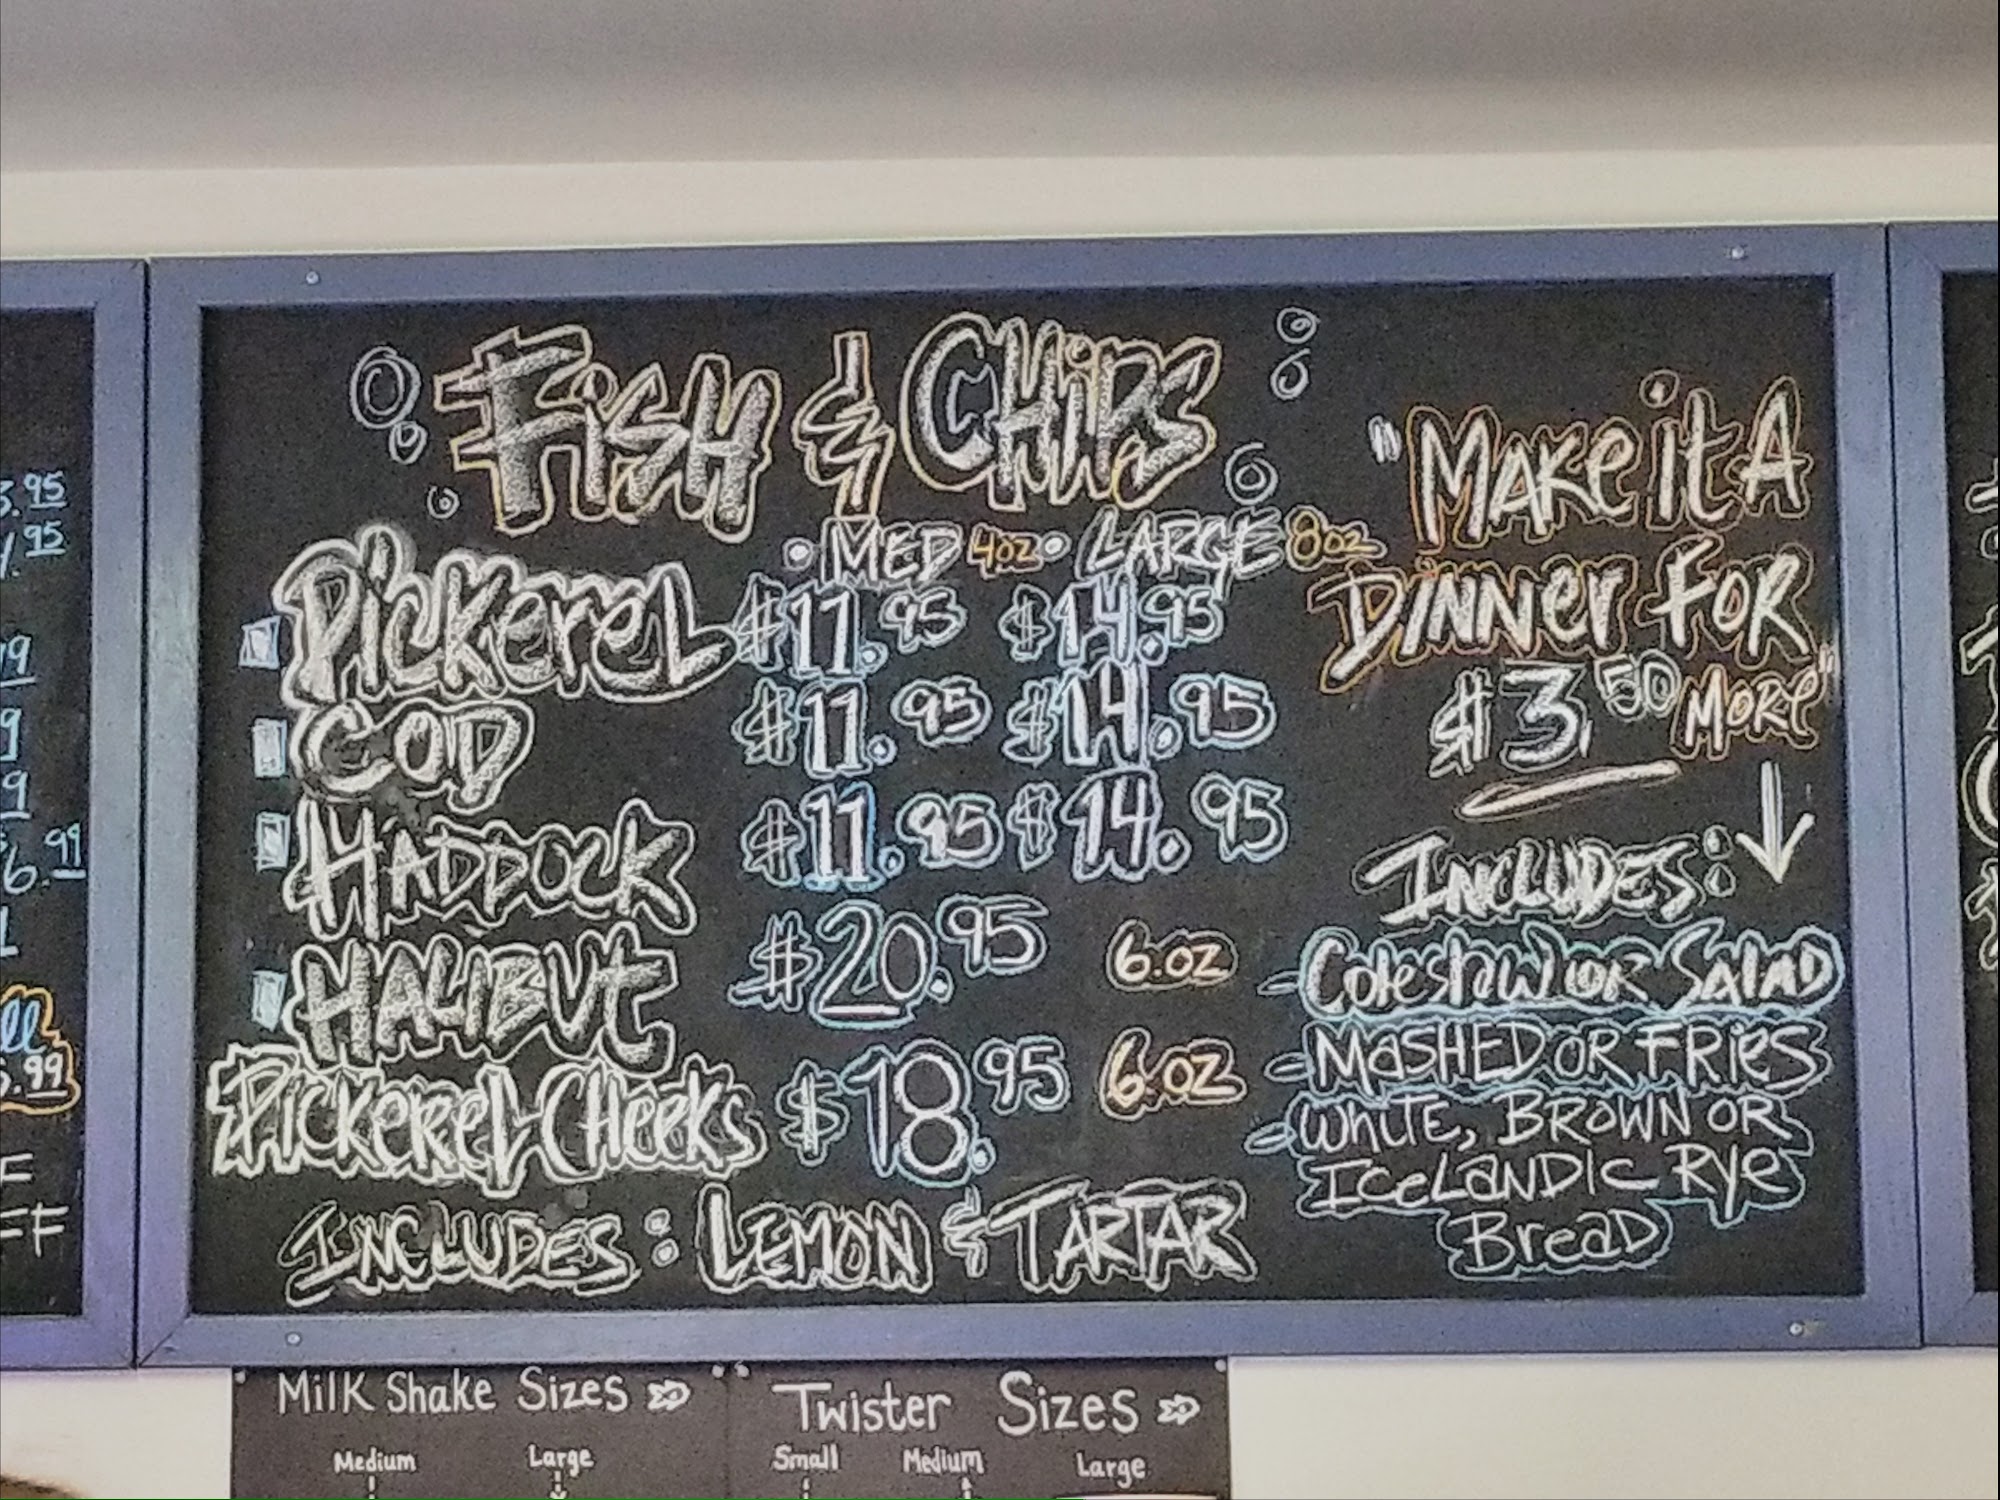 Fish & Chips
• MED 4oz • LARGE 8oz
Pickerel $11.95 $14.95
COD $11.95 $14.95
HADDOCK $11.95 $14.95
HALIBUT $20.95 6.oz
Pickerel Cheeks $18.95 6.oz
INCLUDES: LEMON & TARTAR
"Make it A
Dinner For
$3.50 More"
INCLUDES:
- Coleslaw or Salad
- MASHED OR FRIES
- White, BROWN OR
Icelandic Rye
Bread
.95
.95
6.99
.99
FF
Milk Shake Sizes
Medium Large
Twister Sizes
Small Medium Large